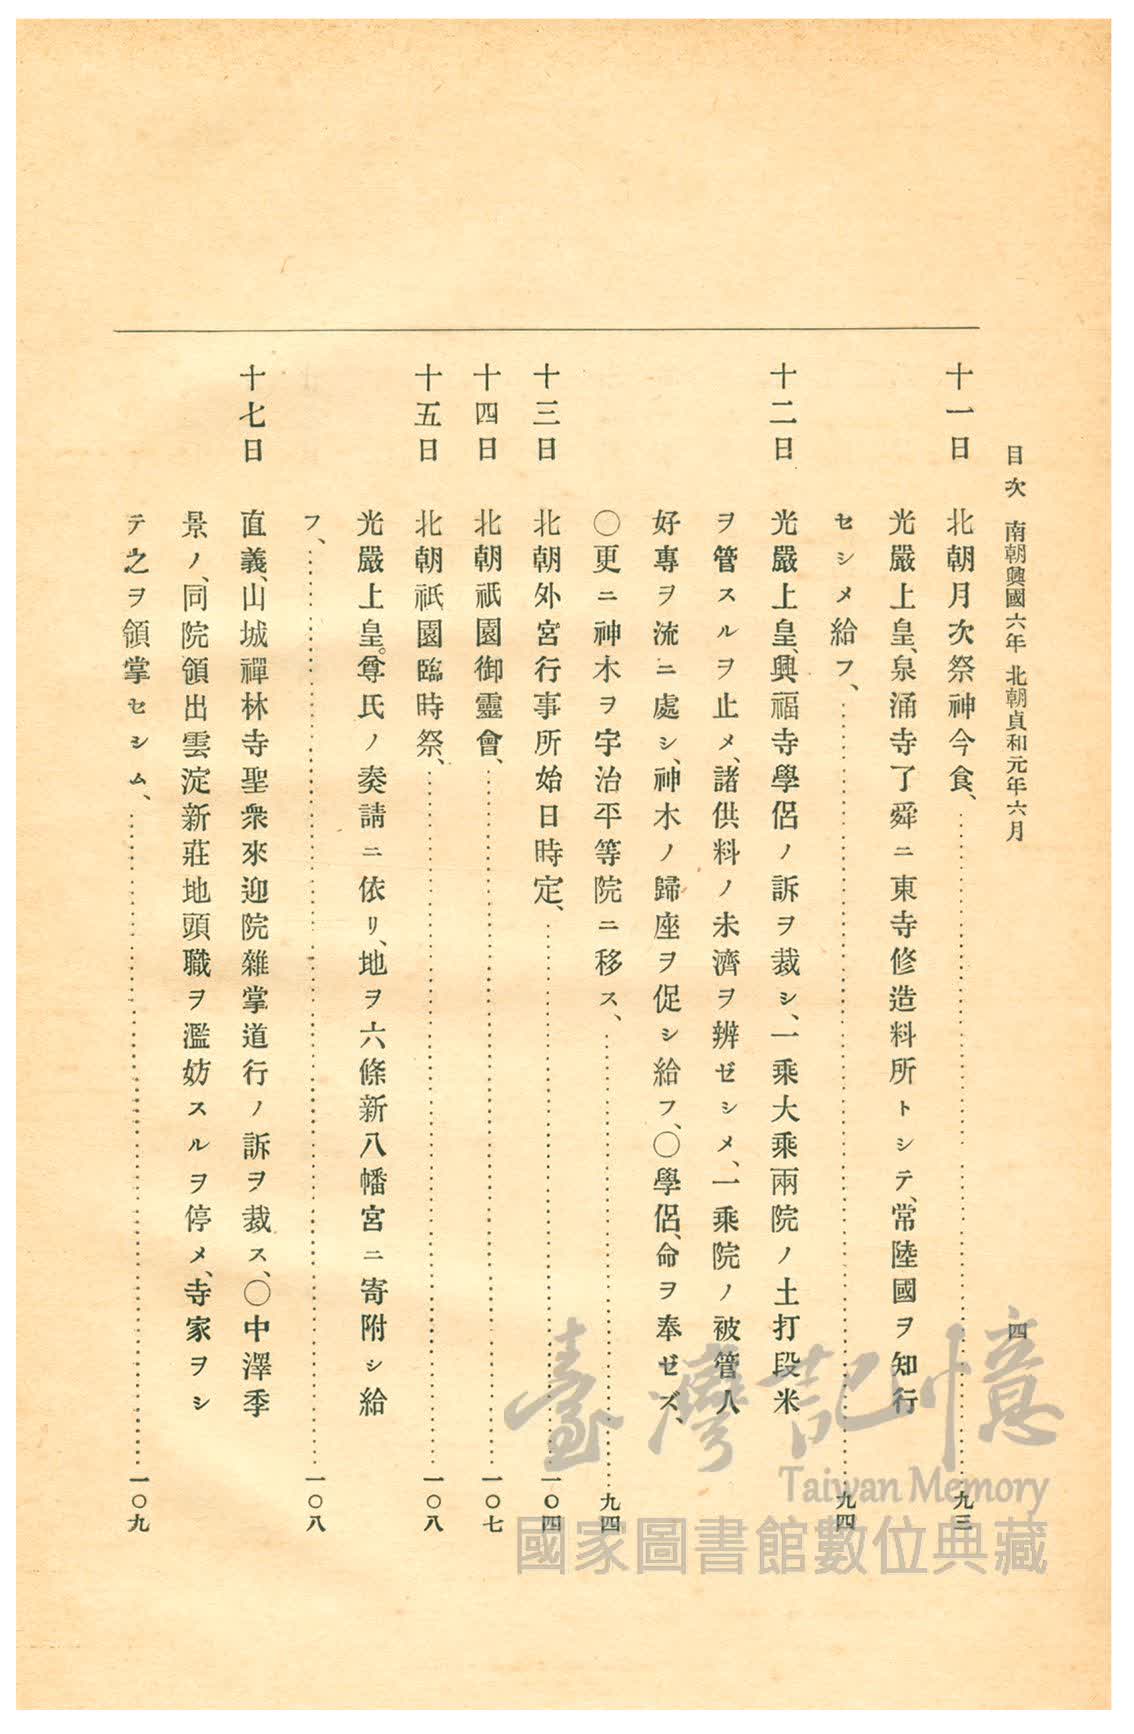 目次　南朝興國六年 北朝貞和元年六月　四
十一日　北朝月次祭神今食、……九三
光嚴上皇、泉涌寺了舜ニ東寺修造料所トシテ、常陸國ヲ知行
セシメ給フ、……九四
十二日　光嚴上皇、興福寺學侶ノ訴ヲ裁シ、一乘大乘兩院ノ土打段米
ヲ管スルヲ止メ、諸供料ノ未濟ヲ辨ゼシメ、一乘院ノ被管人
好專ヲ流ニ處シ、神木ノ歸座ヲ促シ給フ、〇學侶、命ヲ奉ゼズ、
〇更ニ神木ヲ宇治平等院ニ移ス、……九四
十三日　北朝外宮行事所始日時定、……一〇四
十四日　北朝祇園御靈會、……一〇七
十五日　北朝祇園臨時祭、……一〇八
光嚴上皇。尊氏ノ奏請ニ依リ、地ヲ六條新八幡宮ニ寄附シ給
フ、……一〇八
十七日　直義、山城禪林寺聖衆來迎院雜掌道行ノ訴ヲ裁ス、〇中澤季
景ノ、同院領出雲淀新莊地頭職ヲ濫妨スルヲ停メ、寺家ヲシ
テ之ヲ領掌セシム、……一〇九
臺灣記憶
Taiwan Memory
國家圖書館數位典藏